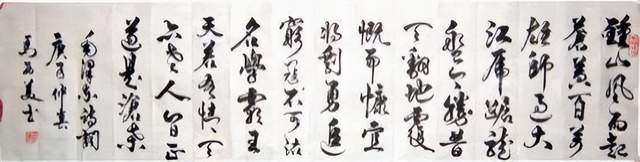 鍾山風雨起
蒼黃百萬
雄師過大
江虎踞龍
盤今勝昔
天翻地覆
慨而慷宜
將剩勇追
窮寇不可沽
名學霸王
天若有情天
亦老人間正
道是滄桑
毛澤東詩詞
庚子仲
馬 書